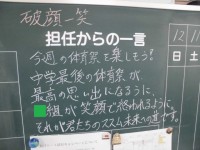 破顔一笑
担任からの一言
今週の体育祭を楽しもう!
中学最後の体育祭が、
最高の思い出になるように、
組が笑顔で終われるように。
それが君たちのススム未来への
12
11
日
土